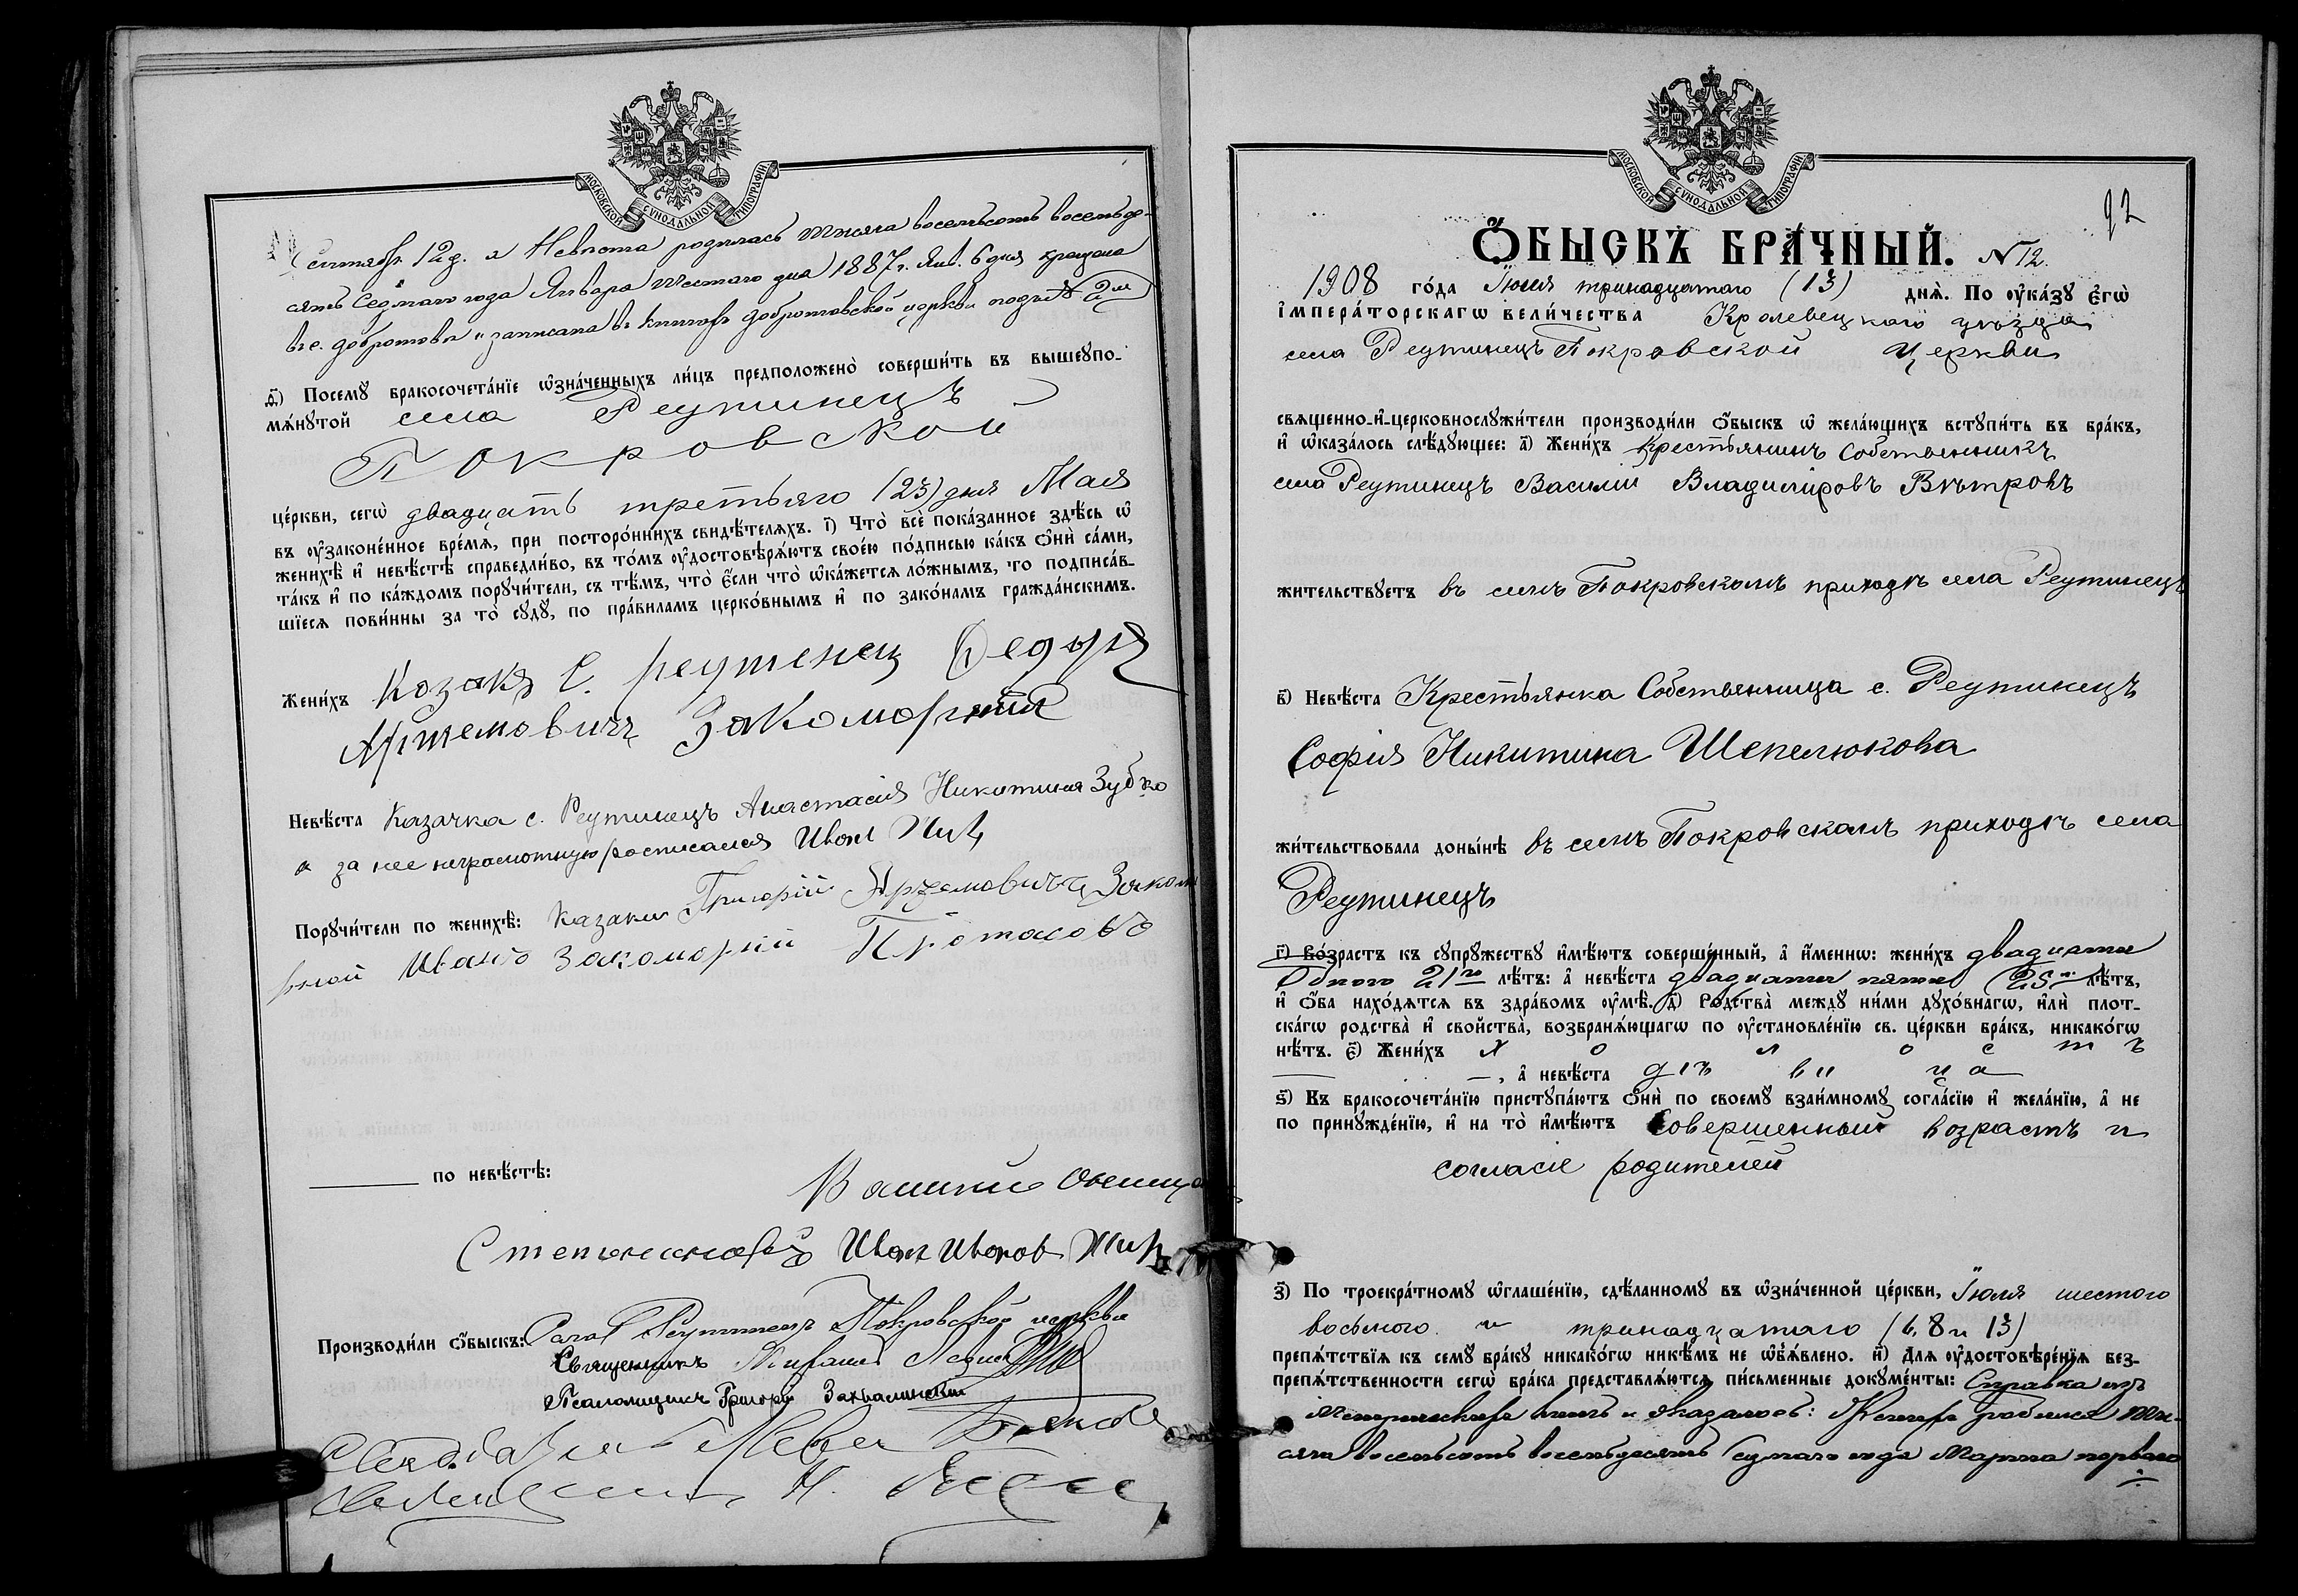 МОСКОВСКОЙ СѴНОДАЛЬНОЙ ТИПОГРАФІИ
Сентябр. 12 д. а Невѣста родилась тысяча восемьсотъ восемьде-
сятъ седьмаго года Января шестаго дня 1887 г. Янв. 6 дня крещена
въ с. Добротовѣ и записана въ книгахъ Добротовской церкви подъ № 2м
д҃) Посемꙋ бракосочета́нїе ѡ҆зна́ченныхъ ли́цъ предположено̀ соверши́ть въ вышеꙋпо-
мѧ́нꙋтой села Реутинецъ
Покровской
це́ркви, сегѡ̀ двадцать третьяго (23) дня Мая
въ ᲂу҆законе́нное вре́мѧ, при посторо́ннихъ свидѣ́телѧхъ. і҃) Что̀ всѐ пока́занное здѣ́сь ѡ҆
женихѣ̀ и҆ невѣ́стѣ справедли́во, въ то́мъ ᲂу҆достовѣрѧ́ютъ свое́ю по́дписью ка́къ ѻ҆нѝ са́ми,
та́къ и҆ по ка́ждомъ порꙋчи́тели, съ тѣ́мъ, что̀ є҆́сли что̀ ѡ҆ка́жетсѧ ло́жнымъ, то подписа́в-
шїесѧ пови́нны за то̀ сꙋдꙋ̀, по пра́виламъ церко́внымъ и҆ по зако́намъ гражда́нскимъ.
Жени́хъ Козакъ С. реутенец Федоръ
Артемовичъ Закоморній
Невѣ́ста Казачка с. Реутинецъ Анастасія Никитина Зубко
а за нее неграмотную росписался Иван Жир
Порꙋчи́тели по женихѣ̀: Казаки Григорій Артемовичъ Закомо
рной Иванъ Закоморній Протасовъ
по невѣ́стѣ:
Степановъ Иван Иванов Жир
Производи́ли ѻ҆́быскъ: Реутинецъ Покровской церкви
Священникъ Михаилъ
Псаломщикъ Григорій
МОСКОВСКОЙ СѴНОДАЛЬНОЙ ТИПОГРАФІИ
92
Ѻ҆́БЫСКЪ БРА́ЧНЫЙ. № 12.
1908 го́да Іюля тринадцатого (13) днѧ̀. По ᲂу҆ка́зꙋ є҆гѡ̀
і҆мпера́торскагѡ вели́чества Кролевецкаго уѣзда
села Реутинецъ Покровской Церкви
свѧще́нно-и҆-церковнослꙋжи́тели производи́ли ѻ҆́быскъ ѡ҆ жела́ющихъ встꙋпи́ть въ бра́къ,
и҆ ѡ҆каза́лось слѣ́дꙋющее: а҃) Жени́хъ Крестьянинъ Собственникъ
села Реутинецъ Василій Владиміровъ Вѣтровъ
жи́тельствꙋетъ въ семъ Покровскомъ приходѣ села Реутинецъ
в҃) Невѣ́ста Крестьянка Собственница с. Реутинецъ
Софія Никитина Шепелюкова
жи́тельствовала доны́нѣ въ семъ Покровскомъ приходѣ села
Реутинецъ
г҃) Во́зрастъ къ сꙋпрꙋ́жествꙋ и҆мѣ́ютъ соверше́нный, а҆ и҆́меннѡ: жени́хъ двадцати
Одного 21го лѣ́тъ: а҆ невѣ́ста двадцати пяти (25и) лѣ́тъ,
и҆ ѻ҆́ба нахо́дѧтсѧ въ здра́вомъ ᲂу҆мѣ̀. д҃) Родства̀ междꙋ̀ ни́ми дꙋхо́внагѡ, и҆лѝ плот-
ска́гѡ родства̀ и҆ сво́йства̀, возбранѧ́ющагѡ по ᲂу҆становле́нїю св. це́ркви бра́къ, никако́гѡ
нѣ́тъ. є҃) Жени́хъ холостъ
, а҆ невѣ́ста дѣвица
ѕ҃) Къ бракосочета́нїю пристꙋпа́ютъ ѻ҆нѝ по своемꙋ̀ взаи́мномꙋ согла́сїю и҆ жела́нїю, а҆ не
по принꙋжде́нїю, и҆ на то̀ и҆мѣ́ютъ Совершенный возрастъ и
согласіе родителей
з҃) По троекра́тномꙋ ѡ҆глаше́нїю, сдѣ́ланномꙋ въ ѡ҆зна́ченной це́ркви, Іюля шестого
восьмого и тринадцатого (6, 8 и 13)
препѧ́тствїѧ къ семꙋ̀ бра́кꙋ никако́гѡ никѣ́мъ не ѡ҆б̾ѧ́влено. и҃) Длѧ ᲂу҆достовѣре́нїѧ без-
препѧ́тственности сегѡ̀ бра́ка представлѧ́ютсѧ пи́сьменные докꙋме́нты: Справка изъ
метрическихъ книгъ и оказалось: Женихъ родился тыс-
сяча восемьсотъ восемьдесятъ седьмаго года Марта перваго